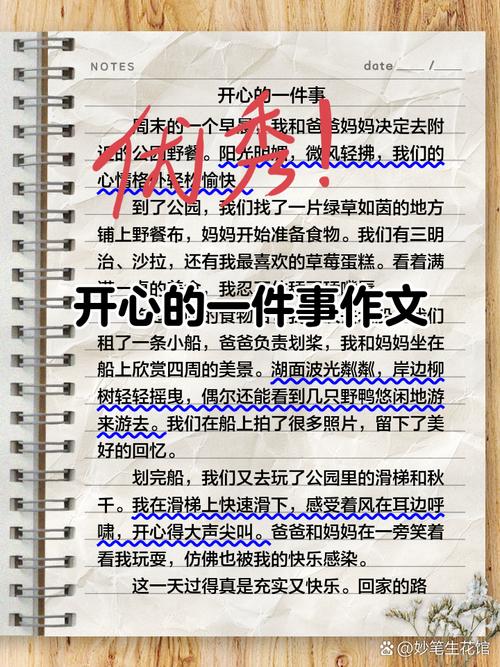 NOTES
date ____ / ____
开心的一件事
周末的一个早晨，我和爸爸妈妈决定去附
近的公园野餐。阳光明媚，微风轻拂，我们的
心情格外轻松愉快
优秀！
到了公园，我们找了一片绿草如茵的地方
铺上野餐布，妈妈开始准备食物。我们有三明
治、沙拉，还有我最喜欢的草莓蛋糕。看着满
开心的一件事作文
的食物
们
租了一条小船，爸爸负责划桨，我和妈妈坐在
船上欣赏四周的美景。湖面波光粼粼，岸边柳
树轻轻摇曳，偶尔还能看到几只野鸭悠闲地游
来游去。我们在船上拍了很多照片，留下了美
好的回忆。
划完船，我们又去玩了公园里的滑梯和秋
千。我在滑梯上快速滑下，感受着风在耳边呼
啸，开心得大声尖叫。爸爸和妈妈在一旁笑着
看我玩耍，仿佛也被我的快乐感染。
这一天过得真是充实又快乐。回家的路
@妙笔生花馆